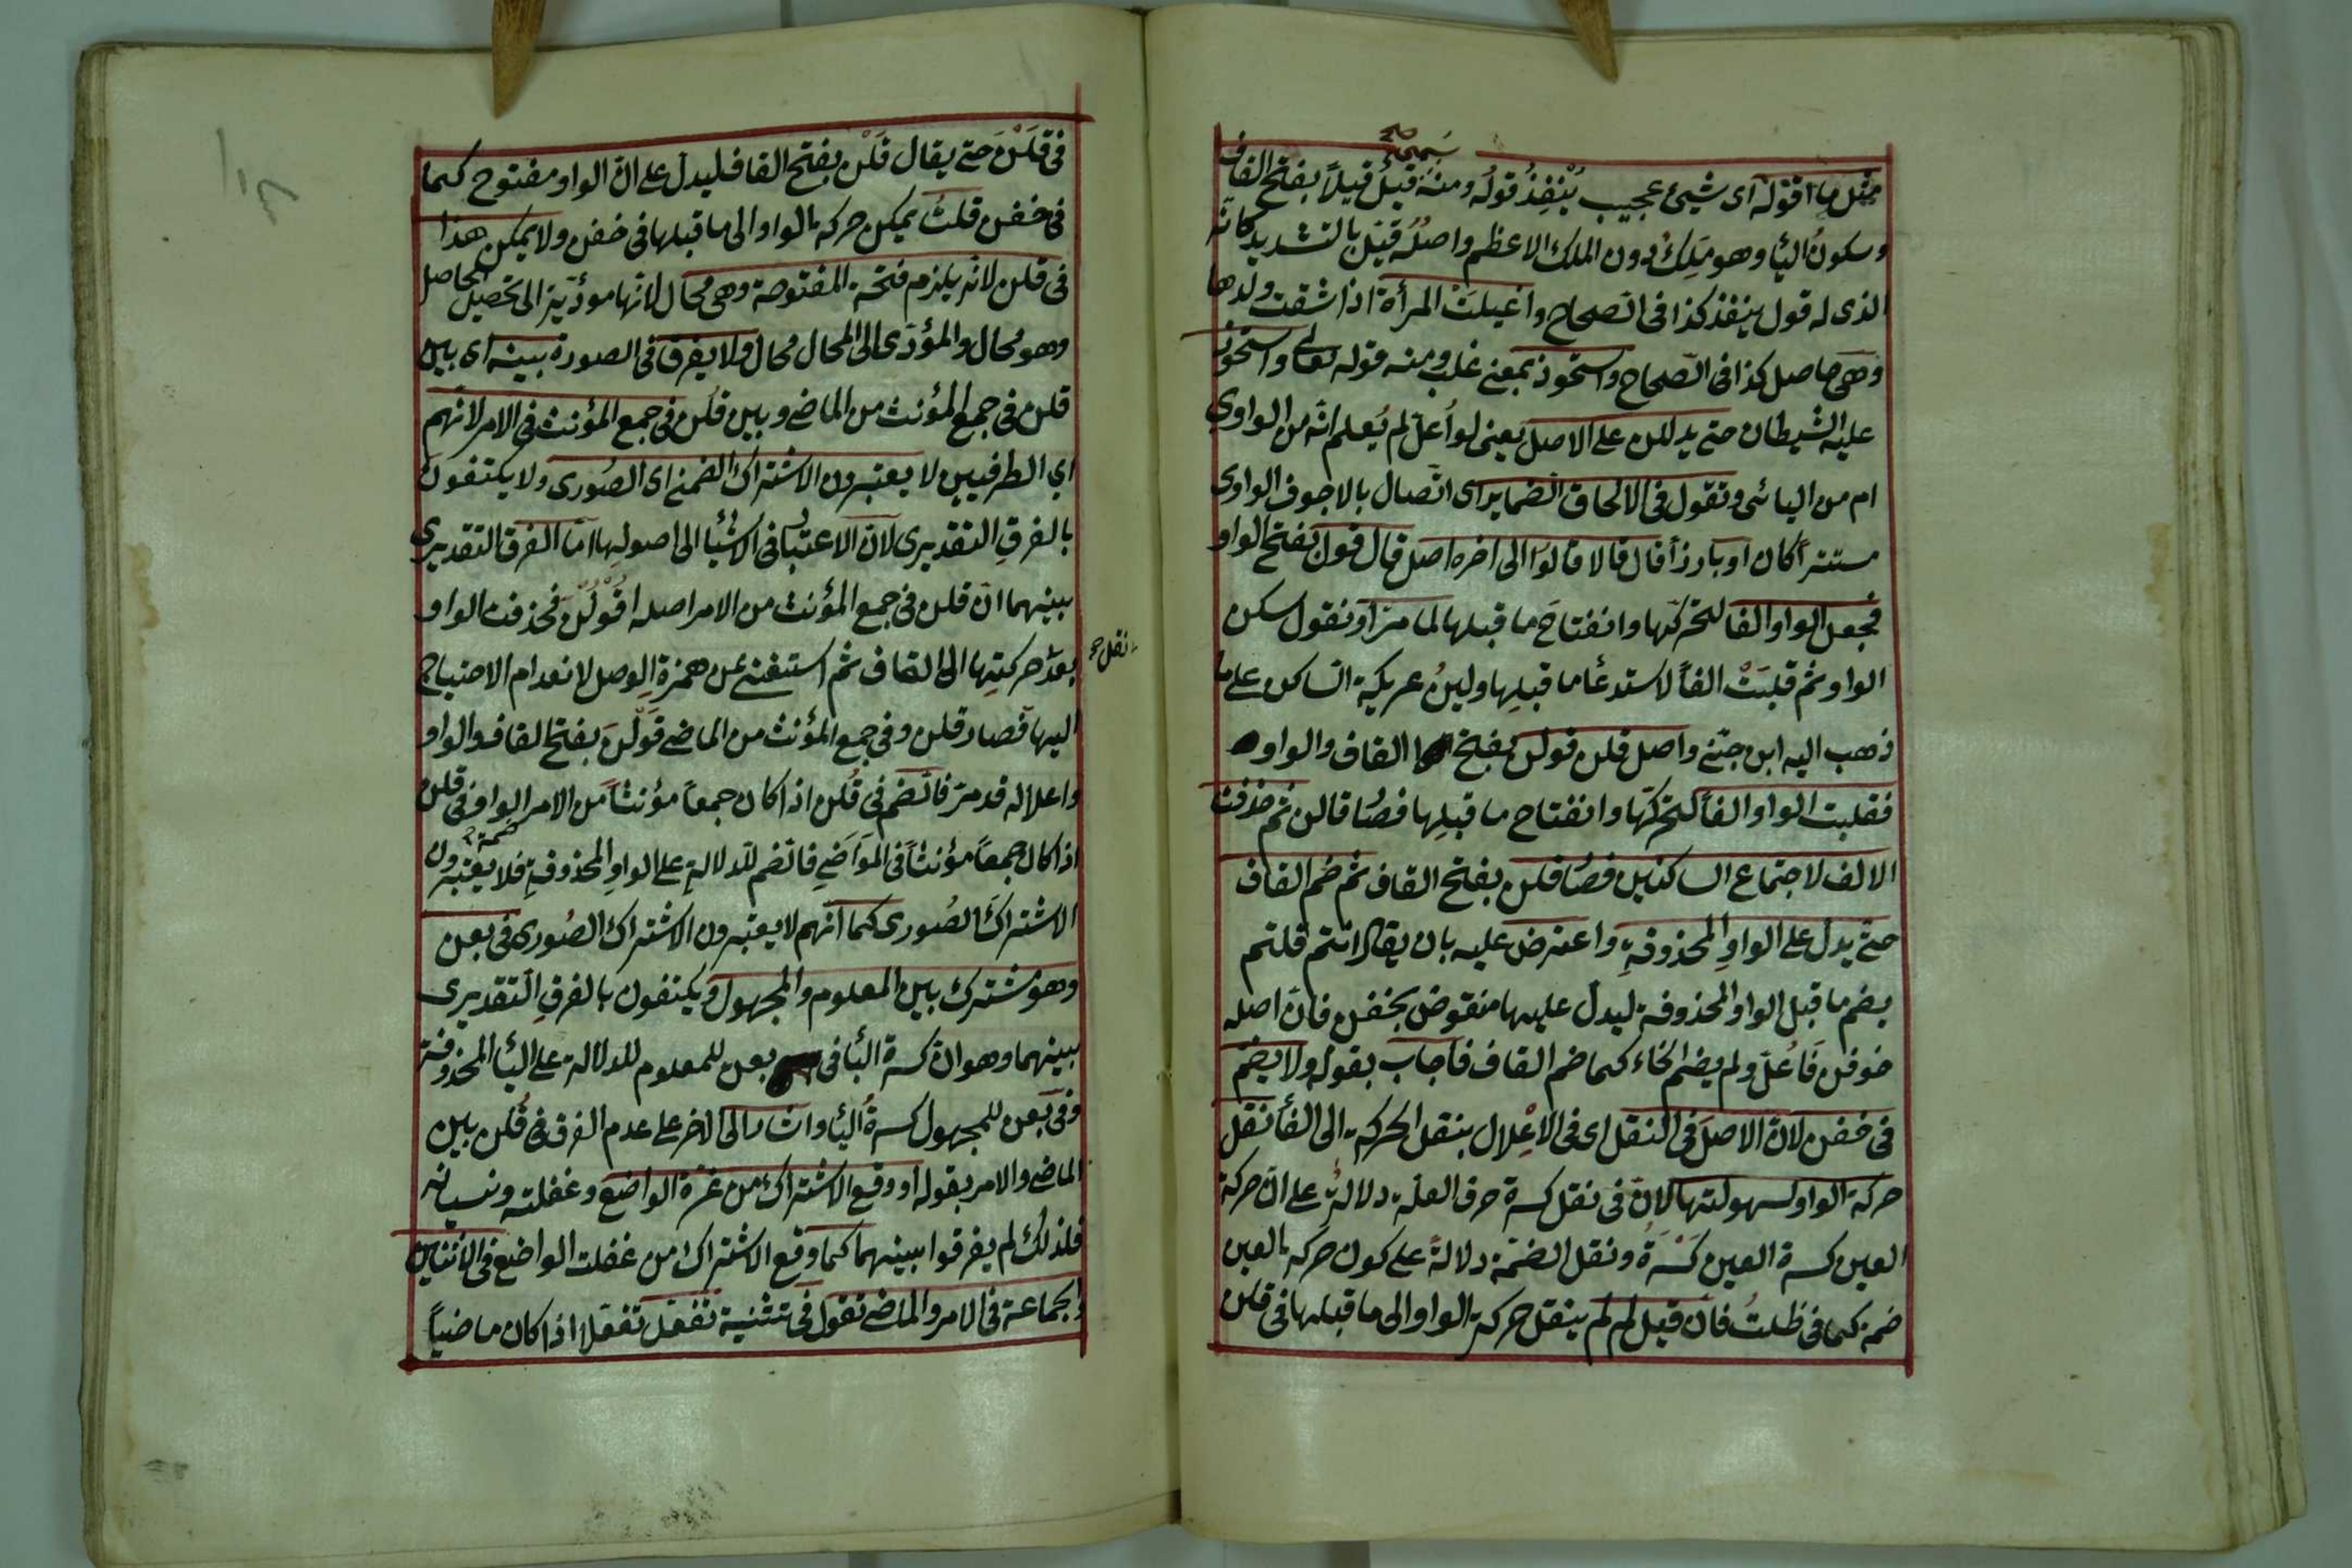 مثل ما اقوله اى شيئ عجيب يُنْفِذُ قولُه ومنه قَيْلُ قَيلاً بفتح القاف
وسكونُ اليأ وهو مَلِكُ دون الملك الاعظم واصلُه قَيّل بالتشديد كانّه
الذى له قول ينفذ كذا فى الصحاح واغيلَتْ المرأة اذا شقت ولدها
وهى حاصل كذا فى الصّحاح واستحوذ بمعنى غلب ومنه قوله تعالى واستحوذ
عليه الشيطان حتى يدللن على الاصل يعنى لو اُعلّ لم يُعلم انّه من الواوي
ام من اليائى وتقول فى الالحاق الضماير اى اتّصال بالاجوف الواوى
مستتراً كان او بارزاً قال قالا قالوا الى اخره اصل قال قول بفتح الواو
فجعل الواو الفا لتحركها وانفتاح ما قبلها لما مرّ او نقول اسكن
الواو ثم قلبَتْ الفاً لاستدعأ ما قبلِها ولينُ عريكة الساكن على ما
ذهب اليه ابن جنّى واصل قلن قولن بفتح القاف والواو
فقلبت الواو الفاً لتحركّها وانفتاح ما قبلِها فصُا قالن ثم حذفت
الالف لاجتماع الساكنين فصُا قلن بفتح القاف ثم ضم القاف
حتّى يدل على الواوِ المحذوفةِ واعترض عليه بان يقال انتم قلتم
بضم ما قبل الواو المحذوفة ليدلّ عليها منقوض بخفن فان اصله
خوفن فَاُعلّ ولم يضم الخاء كما ضم القاف فاجاب بقوله ولا يضم
فى خفن لانّ الاصلَ فى النقل اى فى الاِعْلال بنقل الحركة الى الفأ نقل
حركة الواو لسهولتها لانّ فى نقل كسرة حرف العلّة دلالةً على انّ حركة
العين كسرة العين كَسْرَةُ ونقل الضمّة دلالةً على كون حركة العين
ضمة كما فى ظلتُ فان قيل لم لم ينقل حركة الواو الى ما قبلها فى قلن
فى قَلْنَ حتى يقال قَلْن بفتح القاف ليدل على انّ الواو مفتوح كما
فى خفن قلتُ يمكن حركة الواو الى ما قبلها فى خفن ولا يمكن هذا
فى قلن لانّه يلزم فتحة المفتوحة وهى محال لانها مؤدّية الى تحصيل الحاصل
وهو محال والمؤدّى الى المحال محال ولا يفرق فى الصورة بينه اى بين
قلن فى جمع المؤنث من الماضى وبين قلن فى جمع المؤنث فى الامر لانهم
اي الطرفيين لا يعتبرون الاشتراك الضمنى اى الصُورى ولا يكتفون
بالفرقِ التقديرى لانّ الاعتبا فى الاشيأ الى اصولِها امّا الفرق التقديرى
بينهما انّ قلن فى جمع المؤنث من الامر اصله اُقْوُلْنَ فحذفت الواو
بعد حركتِها الى القاف ثم استغنى عن همزةِ الوصل لانعدام الاحتياج
نقل
اليها فصار قلن وفى جمع المؤنث من الماضى قَوَلْنَ بفتح القاف والواو
واعلاله قد مرّ فالضم فى قُلن اذا كان جمعاً مؤنثاً من الامر الواو فى قلن
ضمة
اذا كان جمعاً مؤنثاً فى المَوَاضَى فالضم للدلالةِ على الواوِ المحذوفةِ فلا يعتبرون
الاشتراكَ الصُورى كما انّهم لا يعتبرون الاشتراك الصُورى فى بعن
وهو مشترك بين المعلوم والمجهول ويكتفون بالفرقِ التّقديرى
بينهما وهو انّ كسرة البأ فى بعن للمعلوم للدلالة على اليأ المحذوفة
وفى بعن للمجهول كسرةُ اليأ واشار الى الاخر على عدم الفرق فى قُلن بين
الماضى والامر بقوله او وقع الاشتراك من غرة الواضع وغفلته ونسيانه
فلذلك لم يفرقوا بينهما كما وقع الاشتراك من غفلت الواضع فى الاثنين
والجماعة فى الامر والماضى تقول فى تثنية تفعّل تفعّلا اذا كان ماضياً